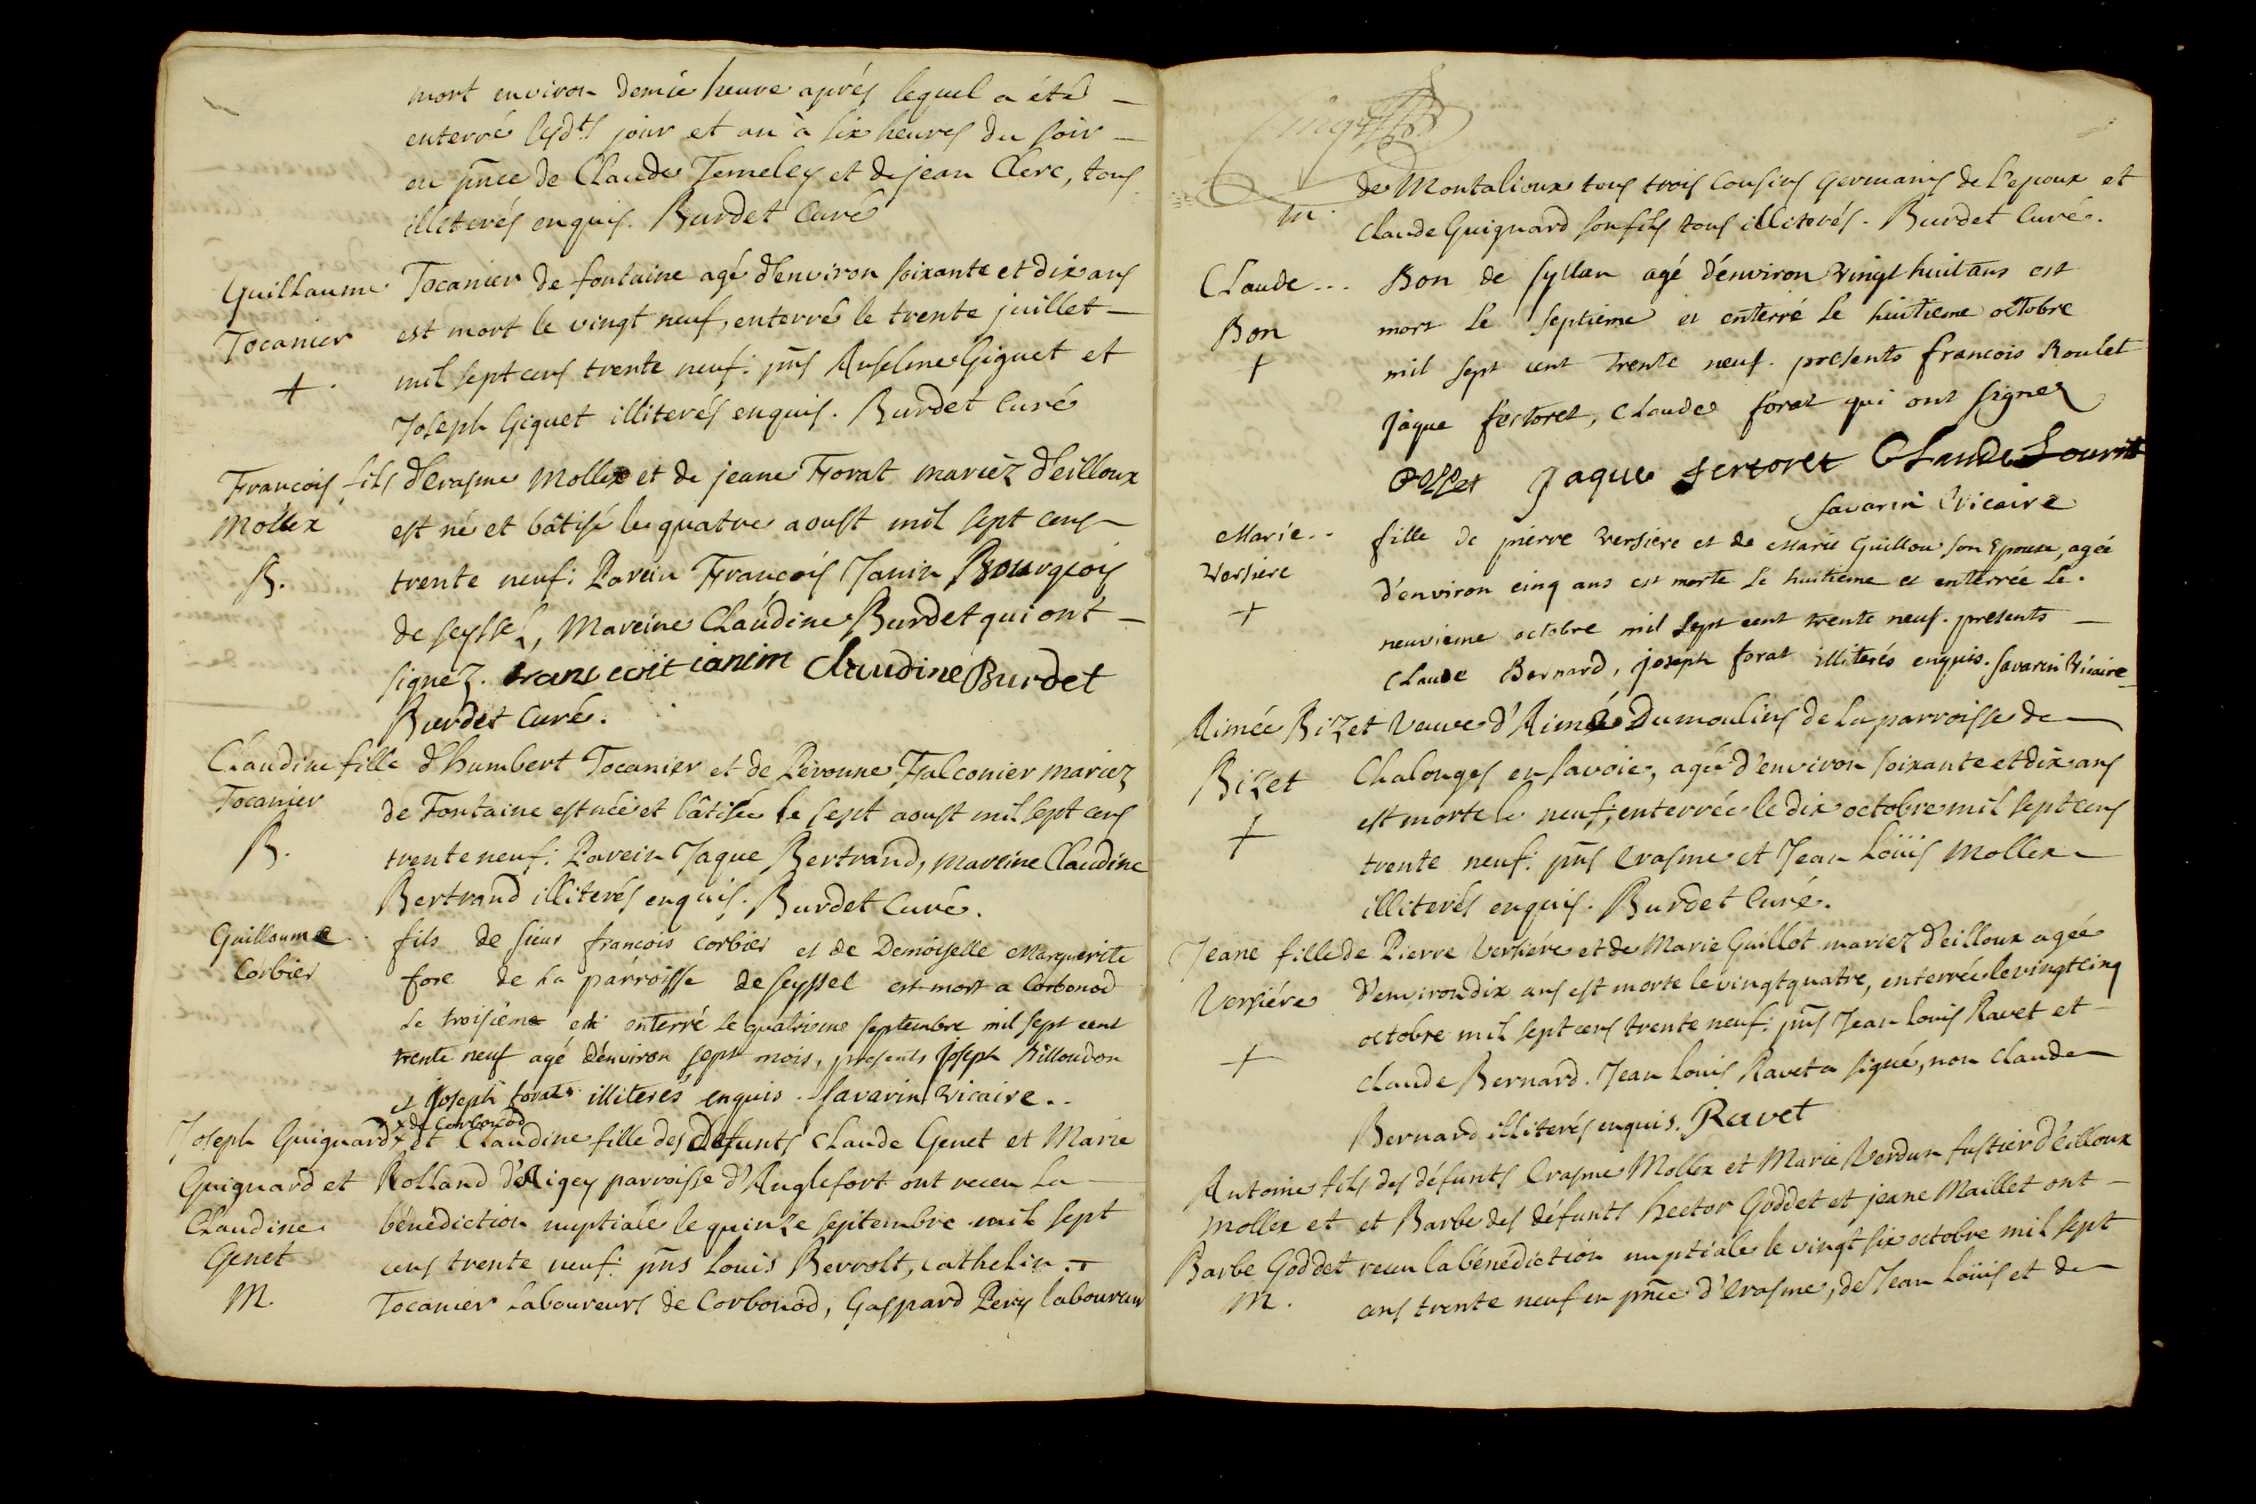 mort environ demie heure aprés lequel a été
enterré lesdts jour et an à six heures du soir
en pnce de Claude Jemeley et de jean Clerc, tous
illiterés enquis. Burdet Curé
Guillaume Tocanier de fontaine agé d'environ soixante et dix ans
Tocanier est mort le vingt neuf, enterré le trente juillet
+ mil sept cens trente neuf. pns Anselme Giguet et
Joseph Giguet illiterés enquis. Burdet Curé
François fils d'Erasme Mollex et de jeane Forat mariéz d'eilloux
Mollex est né et bâtisé le quatre aoust mil sept cens
B. trente neuf. Parein François Janin Bourgeois
de seyssel, Mareine Claudine Burdet qui ont
signéz. francoit ianim Claudine Burdet
Burdet Curé.
Claudine fille d'humbert Tocanier et de Péronne Falconier mariez
Tocanier de Fontaine est née et bâtisée le sept aoust mil sept cens
B. trente neuf. Parein Jaque Bertrand, mareine Claudine
Bertrand illiterés enquis. Burdet Curé.
Guillaume fils de sieur francois Corbier et de Demoiselle Marguerite
Corbier fore de la parroisse de seyssel est mort a Corbonod
le troisiéme et enterré le quatrieme septembre mil sept cent
trente neuf agé d'environ sept mois, presents joseph Billoudon
et joseph forat illiterés enquis. Savarin Vicaire..
x de Corbonod
Joseph Guignard x et Claudine fille des Défunts Claude Genet et Marie
Guignard et Rolland d'Rigey parroisse d'Anglefort ont receu la
Claudine bénédiction nuptiale le quinze septembre mil sept
Genet cens trente neuf. pns Louis Berrolt, cathelin
M. Tocanier laboureurs de Corbonod, Gaspard Pery laboureur
de Montalioux tous trois cousins germains de l'epoux et
M. Claude Guignard son fils tous illiterés. Burdet Curé.
Claude... Bon de syllan agé d'environ vingt huit ans est
Bon mort le septieme et enterré le huitieme octobre
+ mil sept cent trente neuf. presents francois Roulet
Jâque fertoret, Claude forat qui ont signez
Jaque fertoret Claude
Savarin Vicaire
Marie.. fille de pierre versiere et de Marie Guillou son Epouse, agée
Versiere d'environ cinq ans est morte le huitieme et enterrée le.
+ neuvieme octobre mil sept cent trente neuf. presents
Claude Bernard, joseph forat illiterés enquis. Savarin Vicaire
Aimée Bizet Veuve d'Aimé Dumoulins de la parroisse de
Bizet Chalonges en Savoie, agée d'environ soixante et dix ans
+ est morte le neuf, enterrée le dix octobre mil sept cens
trente neuf. pns Erasme et Jean Loüis Mollex
illiterés enquis. Burdet Curé.
Jeane fille de Pierre Versiére et de Marie Guillot mariez d'eilloux agée
Versiére d'environ dix ans est morte le vingt quatre, enterrée le vingt cinq
+ octobre mil sept cens trente neuf. pns Jean Louis Ravet et
Claude Bernard. Jean Louis Ravet a signé, non Claude
Bernard illiterés enquis. Ravet
Antoine fils des défunts Erasme Mollex et Marie Verdun fustier d'eilloux
Mollex et et Barbe des défunts hector Goddet et jeane Maillet ont
Barbe Goddet receu la bénédiction nuptiale le vingt six octobre mil sept
M. cens trente neuf en pnce d'Erasme, de Jean Loüis et de